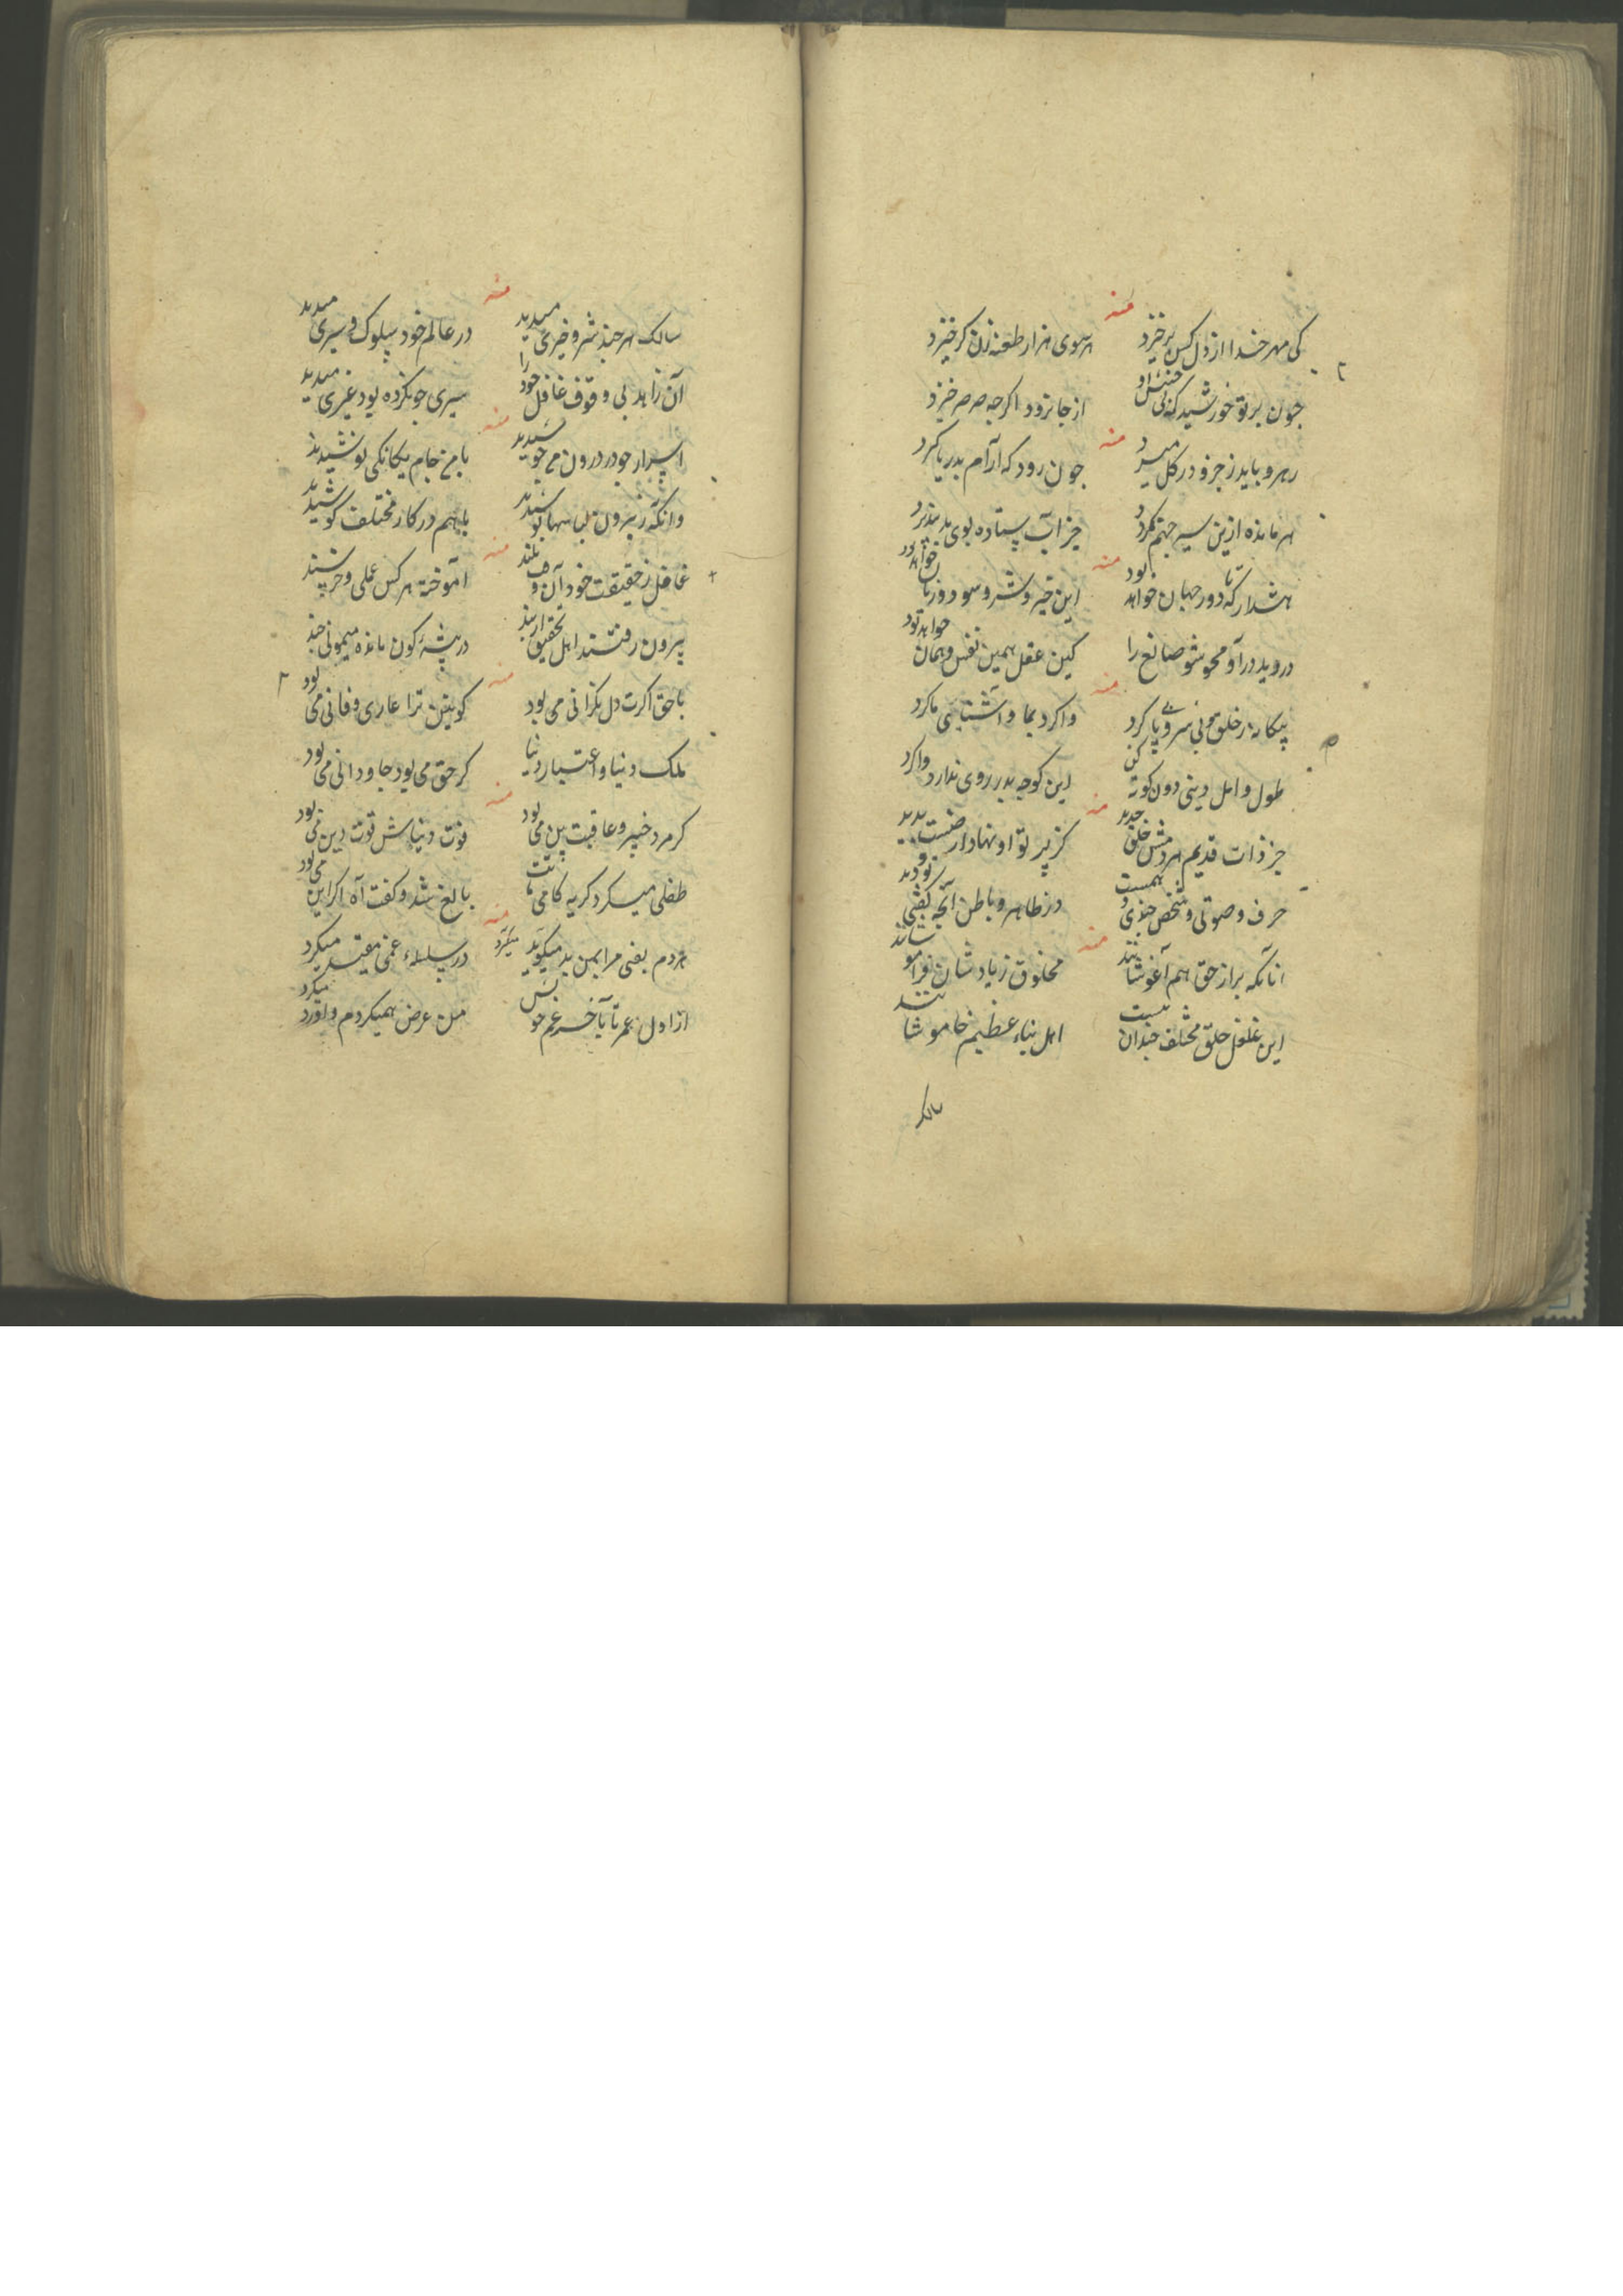 منه
کی مهر خدا از دل کس برخیزد هر سوی هزار طعنه زن کر خیزد
چون پرتو خورشید که بی جنبش او از جا نرود اکرچه صرصر خیزد
منه
رهرو باید ز جزو در کل میرد چون رود که آرام بدریا کیرد
هر مانده ازین سیر جهنم کردد جز آب ستاده بوی بد نپذیرد
منه
هشدار که تا دور جهان خواهد بود این خیر و شر و سود و زیان خواهد بود
در وید درآ و محو شو صانع را کین عقل همین نفس و همان خواهد بود
منه
بیکانه ز خلق بی سر و پا کرد واکرد بما و آشنای ما کرد
طول و امل دینی دون کوته کن این کوچه بدر روی ندارد واکرد
منه
جز ذات قدیم هر دمش خلق جدید کز پرتو او نهاد از صنعت پدید
حرف و صوتی و شخص جندی همست در ظاهر و باطن آنچه کفتی و دید
منه
آنانکه براز حق هم آغوشانند مخلوق ز یادشان فراموشانند
این غلغل خلق مختلف چندان نیست اهل نباء عظیم خاموشانند
سالک
منه
سالک هر چند شر و خیری میدید در عالم خود سلوک و سیری میدید
آن زاهد بی وقوف غافل خود را سیری چو نکرده بود غیری میدید
منه
اسرار چو در درون می جوشیدند با من جام یکانکی نوشیدند
وانکه ز برون لباسها پوشیدند با هم در کار مختلف کوشیدند
منه
غافل ز حقیقت خود آن و بلند آموخته هر کس عملی و حرفه پسند
بیرون رفتند اهل تحقیق ازین در بیشهٔ کون مانده میمونی چند
منه
با حق اکرت دل نکرانی می بود کونین ترا عاری و فانی می بود
ملک دنیا و اعتبار دنیا کر حق می بود جاودانی می بود
منه
کر مرد خبیر و عاقبت بین می بود فوت دنیاش قوت دین می بود
طفلی میکرد کریه کامی بالغ شد و کفت آه اکر این می بود
منه
هر دم بغمی مرا بدین بد میکرد در سلسلهٔ غمی مقید میکرد
از اول عمر تا بآخر غم خویش من عرض همیکردم و او رد میکرد